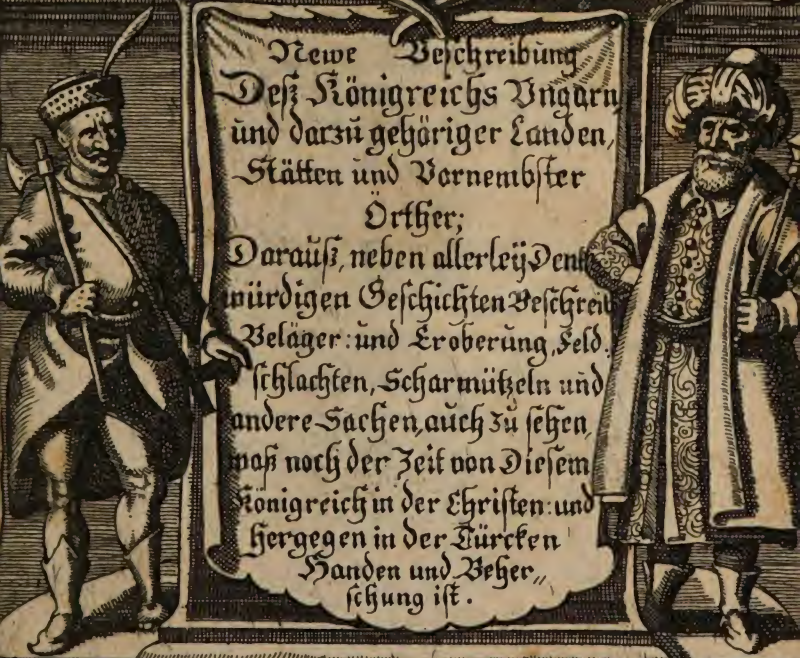 Newe Beschreibung
Deß Königreichs Vngarn,
und darzu gehöriger Landen,
Stätten und Vornembster
Örther;
Darauß, neben allerleÿ Denck
würdigen Geschichten Beschreib
Beläger: und Eroberung, Feld,
schlachten, Scharmützeln und
andere Sachen, auch zu sehen,
waß noch der Zeit von Diesem
Königreich in der Christen: und
hergegen in der Türcken
Handen und Beher„
schung ist.